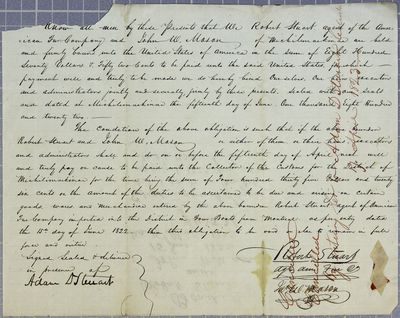 Know all men by these Presents that We Robert Stuart agent of the Ame-
rican Fur Company and John W. Mason of Michilimackinac are held
and firmly bound unto the United States of America in the sum of Eight Hundred
Seventy Dollars & Fifty two Cents to be paid unto the said United States, for which
payment well and truly to be made we do hereby bind Ourselves, Our Executors
and administrators jointly and severally, firmly by these presents, sealed with our seals
and dated at Michilimackinac the fifteenth day of June One thousand Eight Hundred
and twenty two.
The Condition of the above obligation is such that if the above bounden
Robert Stuart and John W. Mason or either of them or their Executors
and administrators shall and do on or before the fifteenth day of April next well
and truly pay or cause to be paid unto the Collector of the Customs for the District of
Michilimackinac for the time being the sum of Four hundred thirty five Dollars and twenty
six cents or the amount of the duties to be ascertained to be due and arising on certain
goods wares and merchandise entered by the above bounden Robert Stuart agent of American
Fur Company as imported into this District in Four Boats from Montreal as per entry dated
the 15th day of June 1822 then this obligation to be void or else to remain in full
force and virtue.
Signed Sealed & delivered
in presence of
Adam D Steuart
Robert Stuart
agt Am Fur Co
Jno W Mason